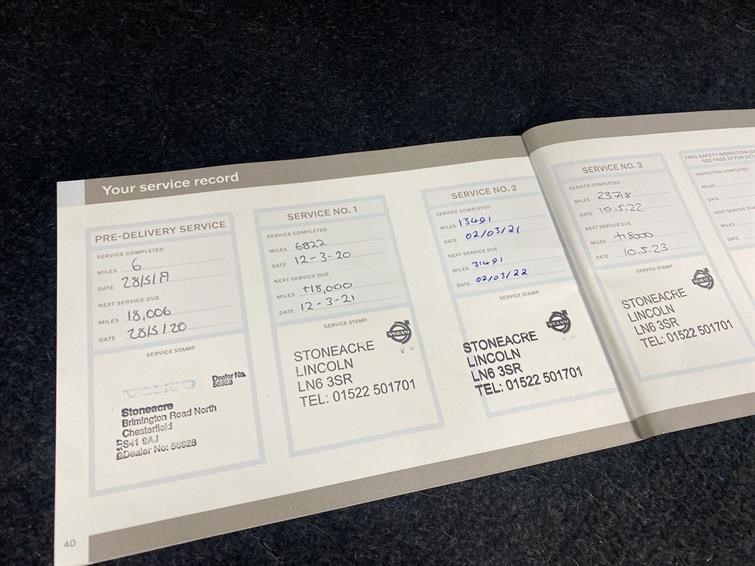 Your service record
PRE-DELIVERY SERVICE
SERVICE COMPLETED
MILES 6
DATE 28/5/19
NEXT SERVICE DUE
MILES 18,006
DATE 28/5/20
SERVICE STAMP
VOLVO
Dealer No.
56928
Stoneacre
Brimington Road North
Chesterfield
S41 9AJ
Dealer No: 56928
SERVICE NO. 1
SERVICE COMPLETED
MILES 6822
DATE 12-3-20
NEXT SERVICE DUE
MILES +18,000
DATE 12-3-21
SERVICE STAMP
VOLVO
STONEACRE
LINCOLN
LN6 3SR
TEL: 01522 501701
SERVICE NO. 2
SERVICE COMPLETED
MILES 13491
DATE 02/03/21
NEXT SERVICE DUE
MILES 31491
DATE 02/03/22
SERVICE STAMP
VOLVO
STONEACRE
LINCOLN
LN6 3SR
TEL: 01522 501701
SERVICE NO. 3
SERVICE COMPLETED
MILES 23718
DATE 10.5.22
NEXT SERVICE DUE
MILES +18000
DATE 10.5.23
SERVICE STAMP
VOLVO
STONEACRE
LINCOLN
LN6 3SR
TEL: 01522 501701
FREE SAFETY INSPECTION
SEE PAGE 37 FOR
INSPECTION COMPLETED
MILES
DATE
MILES
DATE
40